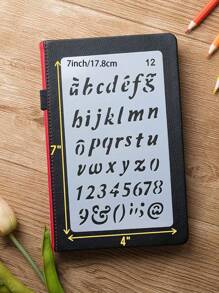 7inch/17.8cm 12
àbcdéfg̃
hijklmn
õpqrstu
vwxyz()
12345678
9&();:@
7"
4"